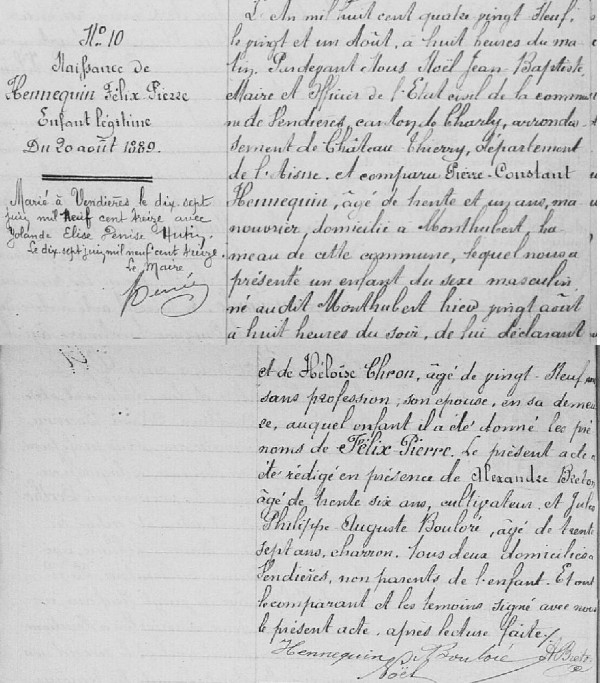 No 10
Naissance de
Hennequin Félix Pierre
Enfant légitime
Du 20 août 1889.
Marié à Vendières le dix-sept
juin mil neuf cent treize avec
Yolande Elise Denise Hutin.
Le dix-sept juin mil neuf cent treize.
Le Maire
L'An mil huit cent quatre vingt neuf,
le vingt et un Août, à huit heures du ma
tin. Pardevant Nous Noël Jean Baptiste
Maire et Officier de l'Etat civil de la commu
ne de Vendières, canton de Charly, arrondis
sement de Château Thierry, Département
de l'Aisne. Est comparu Pierre-Constant
Hennequin, âgé de trente et un ans, ma
nouvrier, domicilié à Monthubert, ha
meau de cette commune, lequel nous a
présenté un enfant du sexe masculin
né audit Monthubert hier vingt août
à huit heures du soir, de lui déclarant
et de Héloïse Chéron, âgé de vingt-neuf
sans profession, son épouse, en sa demeu
re, auquel enfant il a été donné les pré
noms de Félix-Pierre. Le présent acte a
été rédigé en présence de Alexandre Breton
âgé de trente six ans, cultivateur. Et Jules
Philippe Auguste Bouloré, âgé de trente
sept ans, charron. Tous deux domiciliés à
Vendières, non parents de l'enfant. Et ont
le comparant et les témoins signé avec nous
le présent acte, après lecture faite.
Hennequin Bouloré
Noël